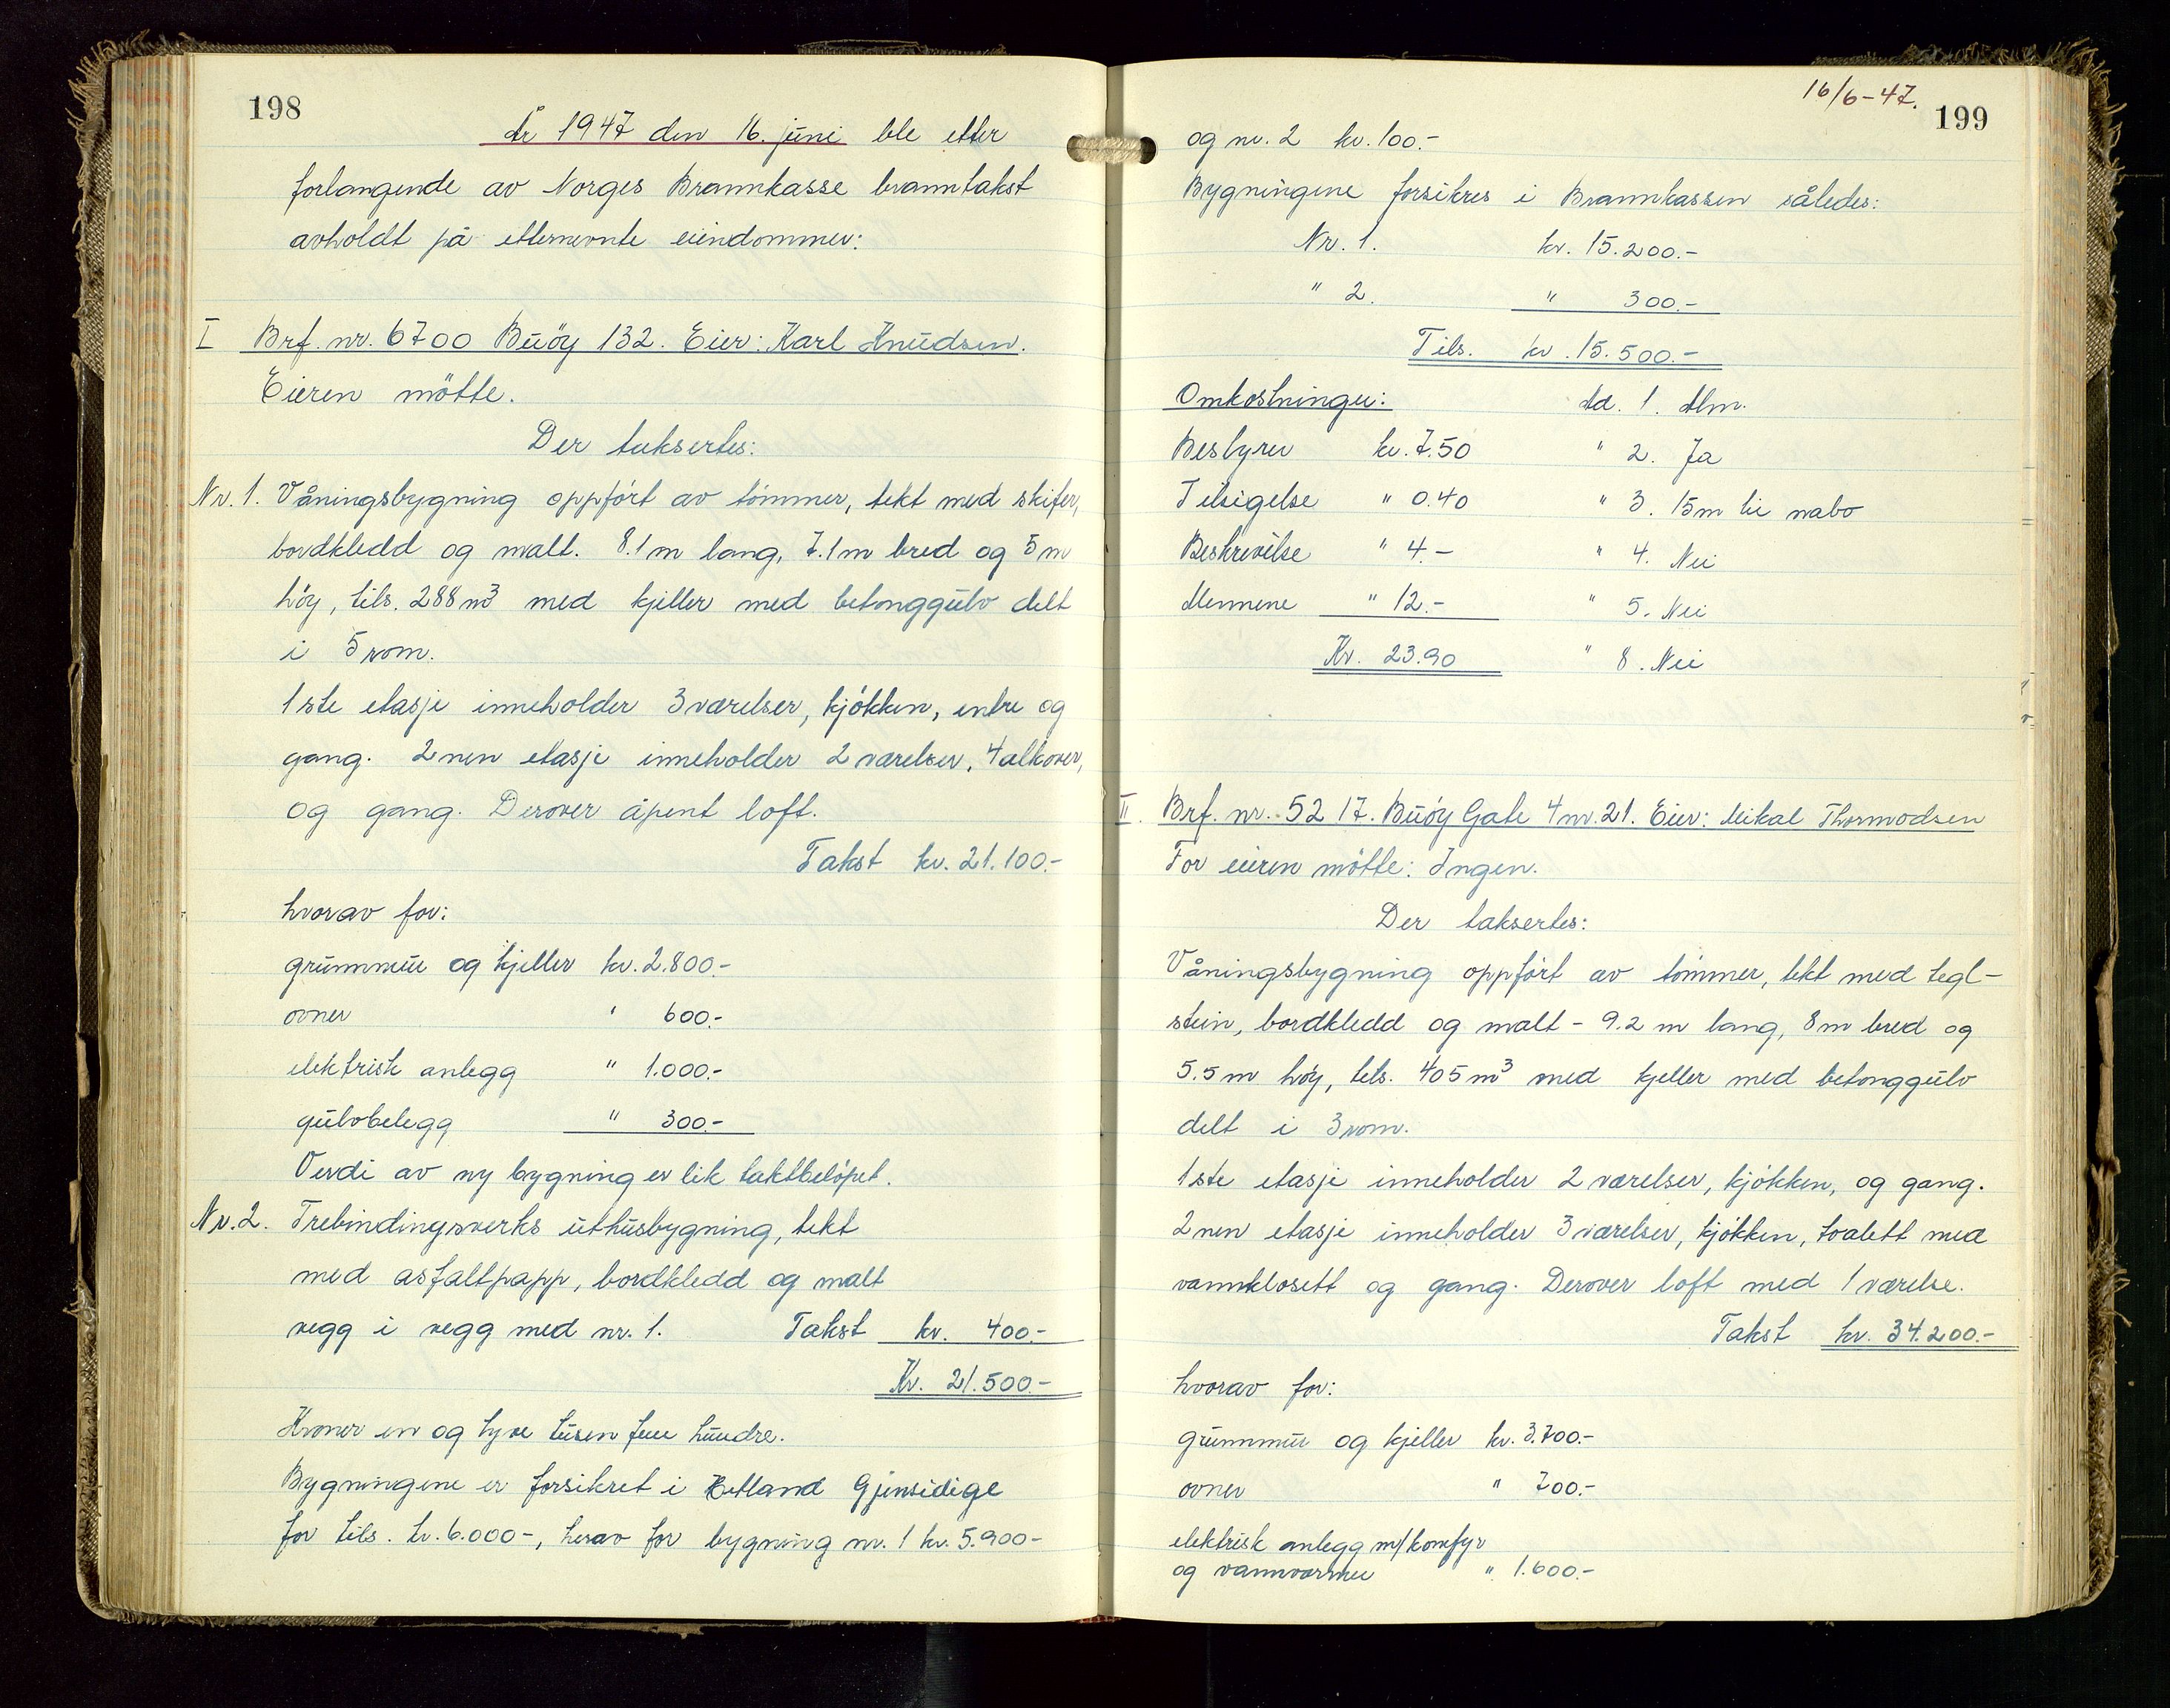 198
År 1947 den 16. juni ble etter
forlangende av Norges Brannkasse branntakst
avholdt på etternevnte eiendommer:
I Brf. nr. 6700 Buöy 132. Eier: Karl Knudsen.
Eieren mötte.
Der taksertes:
Nr. 1. Våningsbygning oppfört av tömmer, tekt med skifer,
bordkledd og malt. 8.1 m lang, 7.1 m bred og 5 m
höy, tils. 288 m³ med kjeller med betonggulv delt
i 5 rom.
1ste etasje inneholder 3 værelser, kjökken, entre og
gang. 2nen etasje inneholder 2 værelser, 4 alkover,
og gang. Derover åpent loft.
Takst kr. 21.100.-
hvorav for:
grunnmur og kjeller kr. 2.800.-
ovner " 600.-
elektrisk anlegg " 1.000.-
gulvbelegg " 300.-
Verdi av ny bygning er lik takstbelöpet.
Nr. 2. Trebindingsverks uthusbygning, tekt
med asfaltpapp, bordkledd og malt
vegg i vegg med nr. 1. Takst kr. 400.-
Kr. 21.500.-
Kroner en og tyve tusen fem hundre.
Bygningene er forsikret i Hetland Gjensidige
for tils. kr. 6.000-, herav for bygning nr. 1 kr. 5.900-
16/6-47.
199
og nr. 2 kr. 100.-
Bygningene forsikres i Brannkassen således:
Nr. 1. kr. 15.200.-
" 2. " 300.-
Tils. kr. 15.500.-
Omkostninger: Ad. 1. Alm.
Bestyrer kr. 7.50 " 2. Ja
Tilsigelse " 0.40 " 3. 15 m til nabo
Beskrivelse " 4.- " 4. Nei
Mennene " 12.- " 5. Nei
Kr. 23.90 " 8. Nei
II. Brf. nr. 5217. Buöy Gate 4 nr. 21. Eier: Mikal Thormodsen
For eieren mötte: Ingen.
Der taksertes:
Våningsbygning oppfört av tömmer, tekt med tegl-
stein, bordkledd og malt - 9.2 m lang, 8 m bred og
5.5 m höy, tils. 405 m³ med kjeller med betonggulv
delt i 3 rom.
1ste etasje inneholder 2 værelser, kjökken, og gang.
2nen etasje inneholder 3 værelser, kjökken, toalett med
vannklosett og gang. Derover loft med 1 værelse.
Takst kr. 34.200.-
hvorav for:
grunnmur og kjeller kr. 3.700.-
ovner " 700.-
elektrisk anlegg m/komfyr
og vannvarmer " 1.600.-